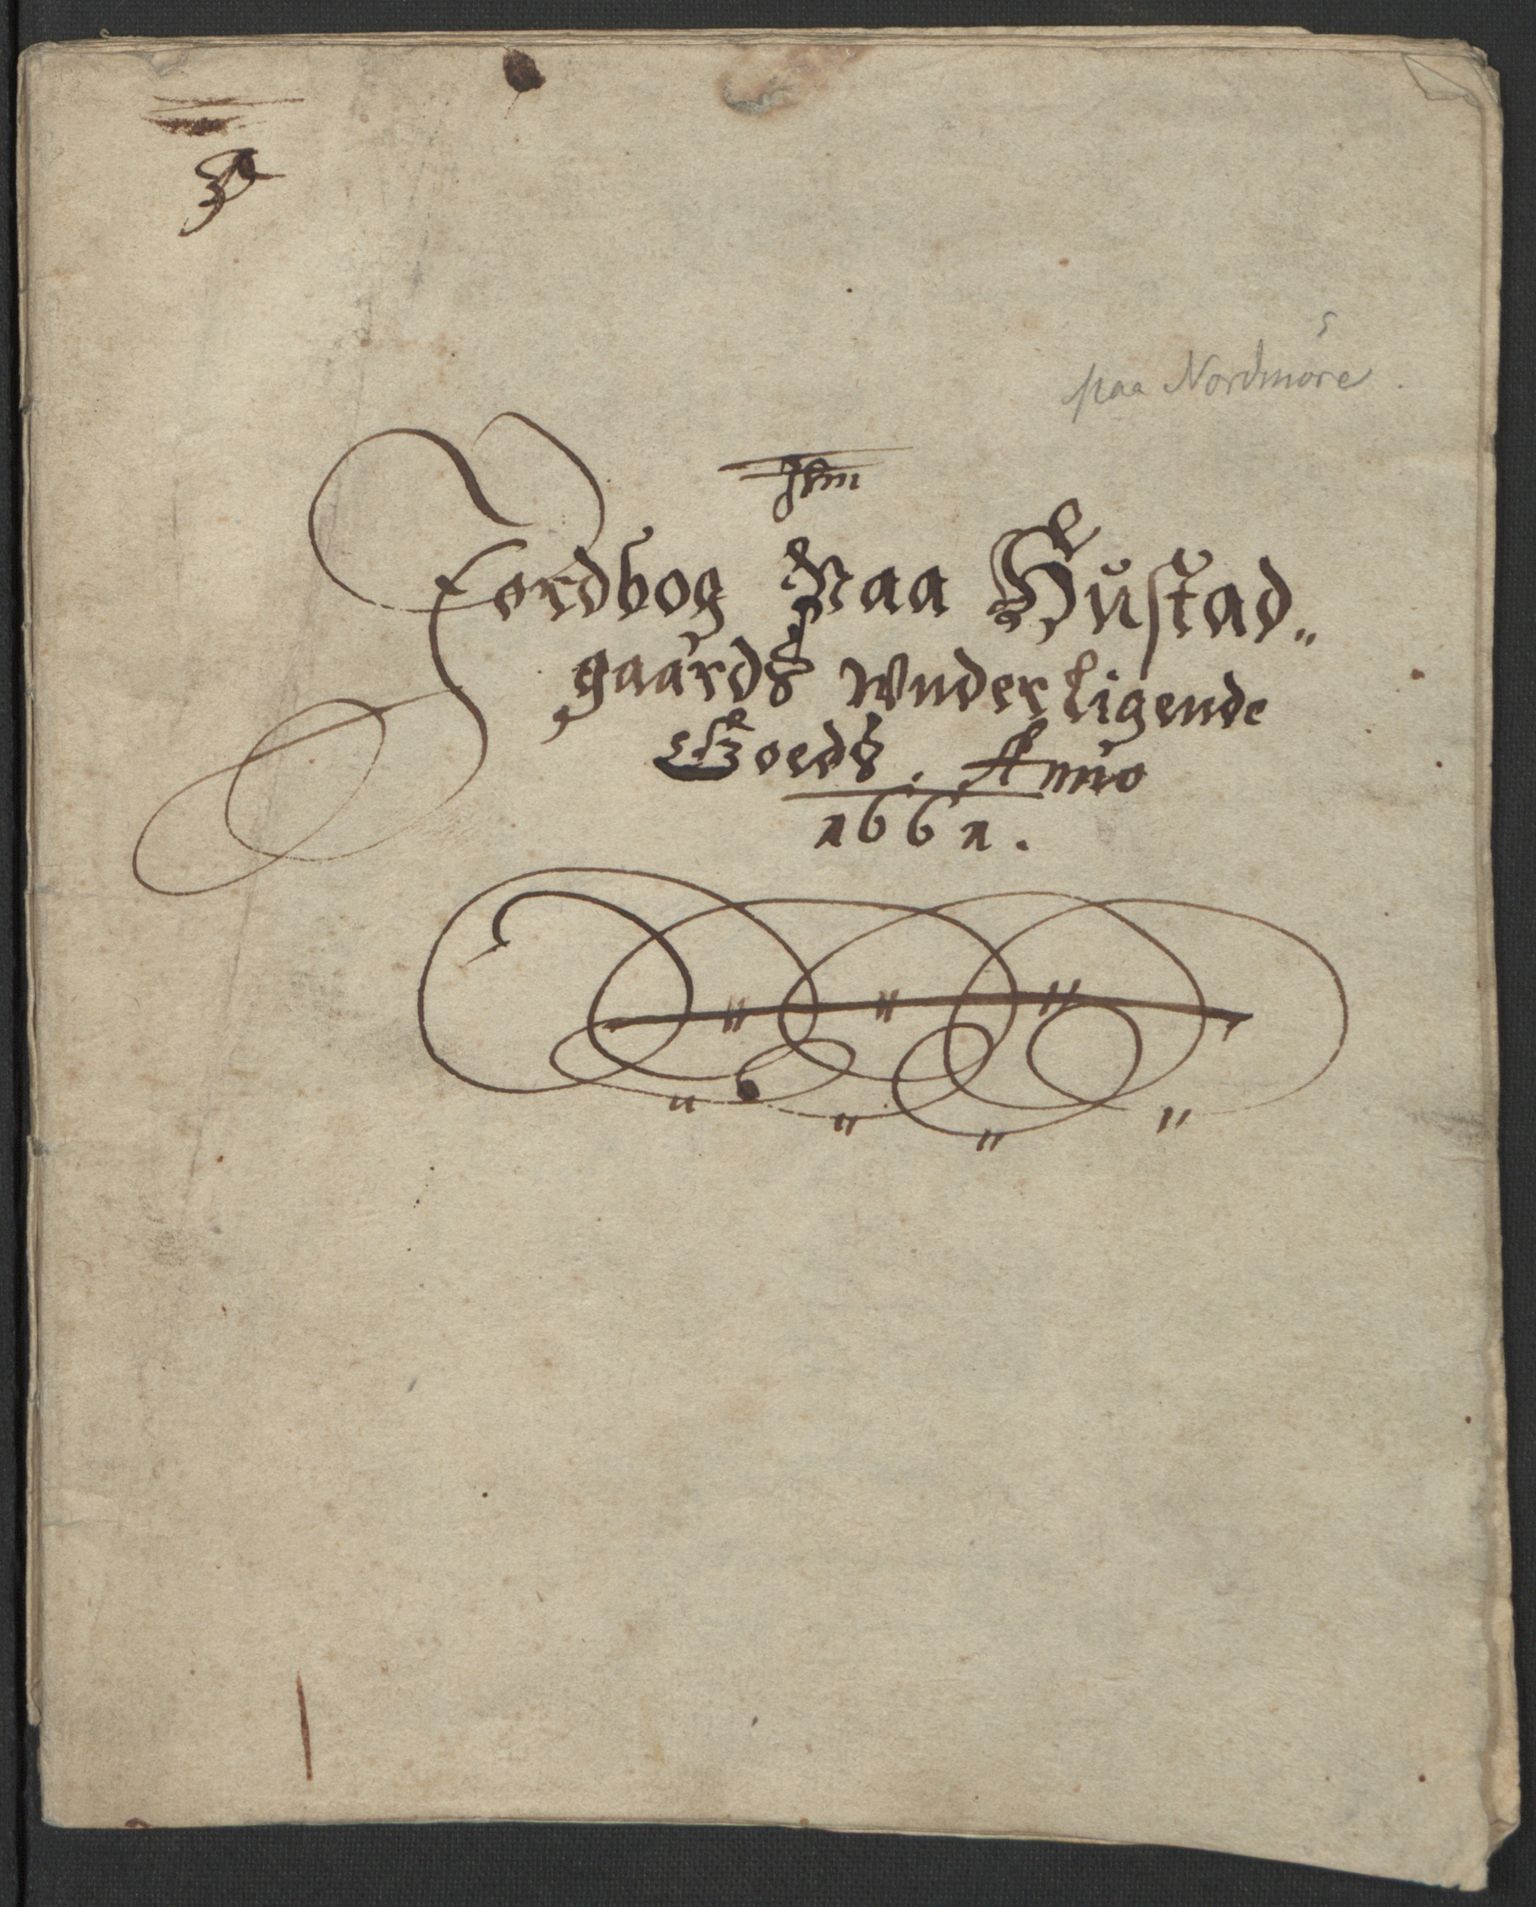 5
paa Nordmöre.
Jordbog Paa Hŭstad„
gaards wnderligende
Goeds. Anno
1661.